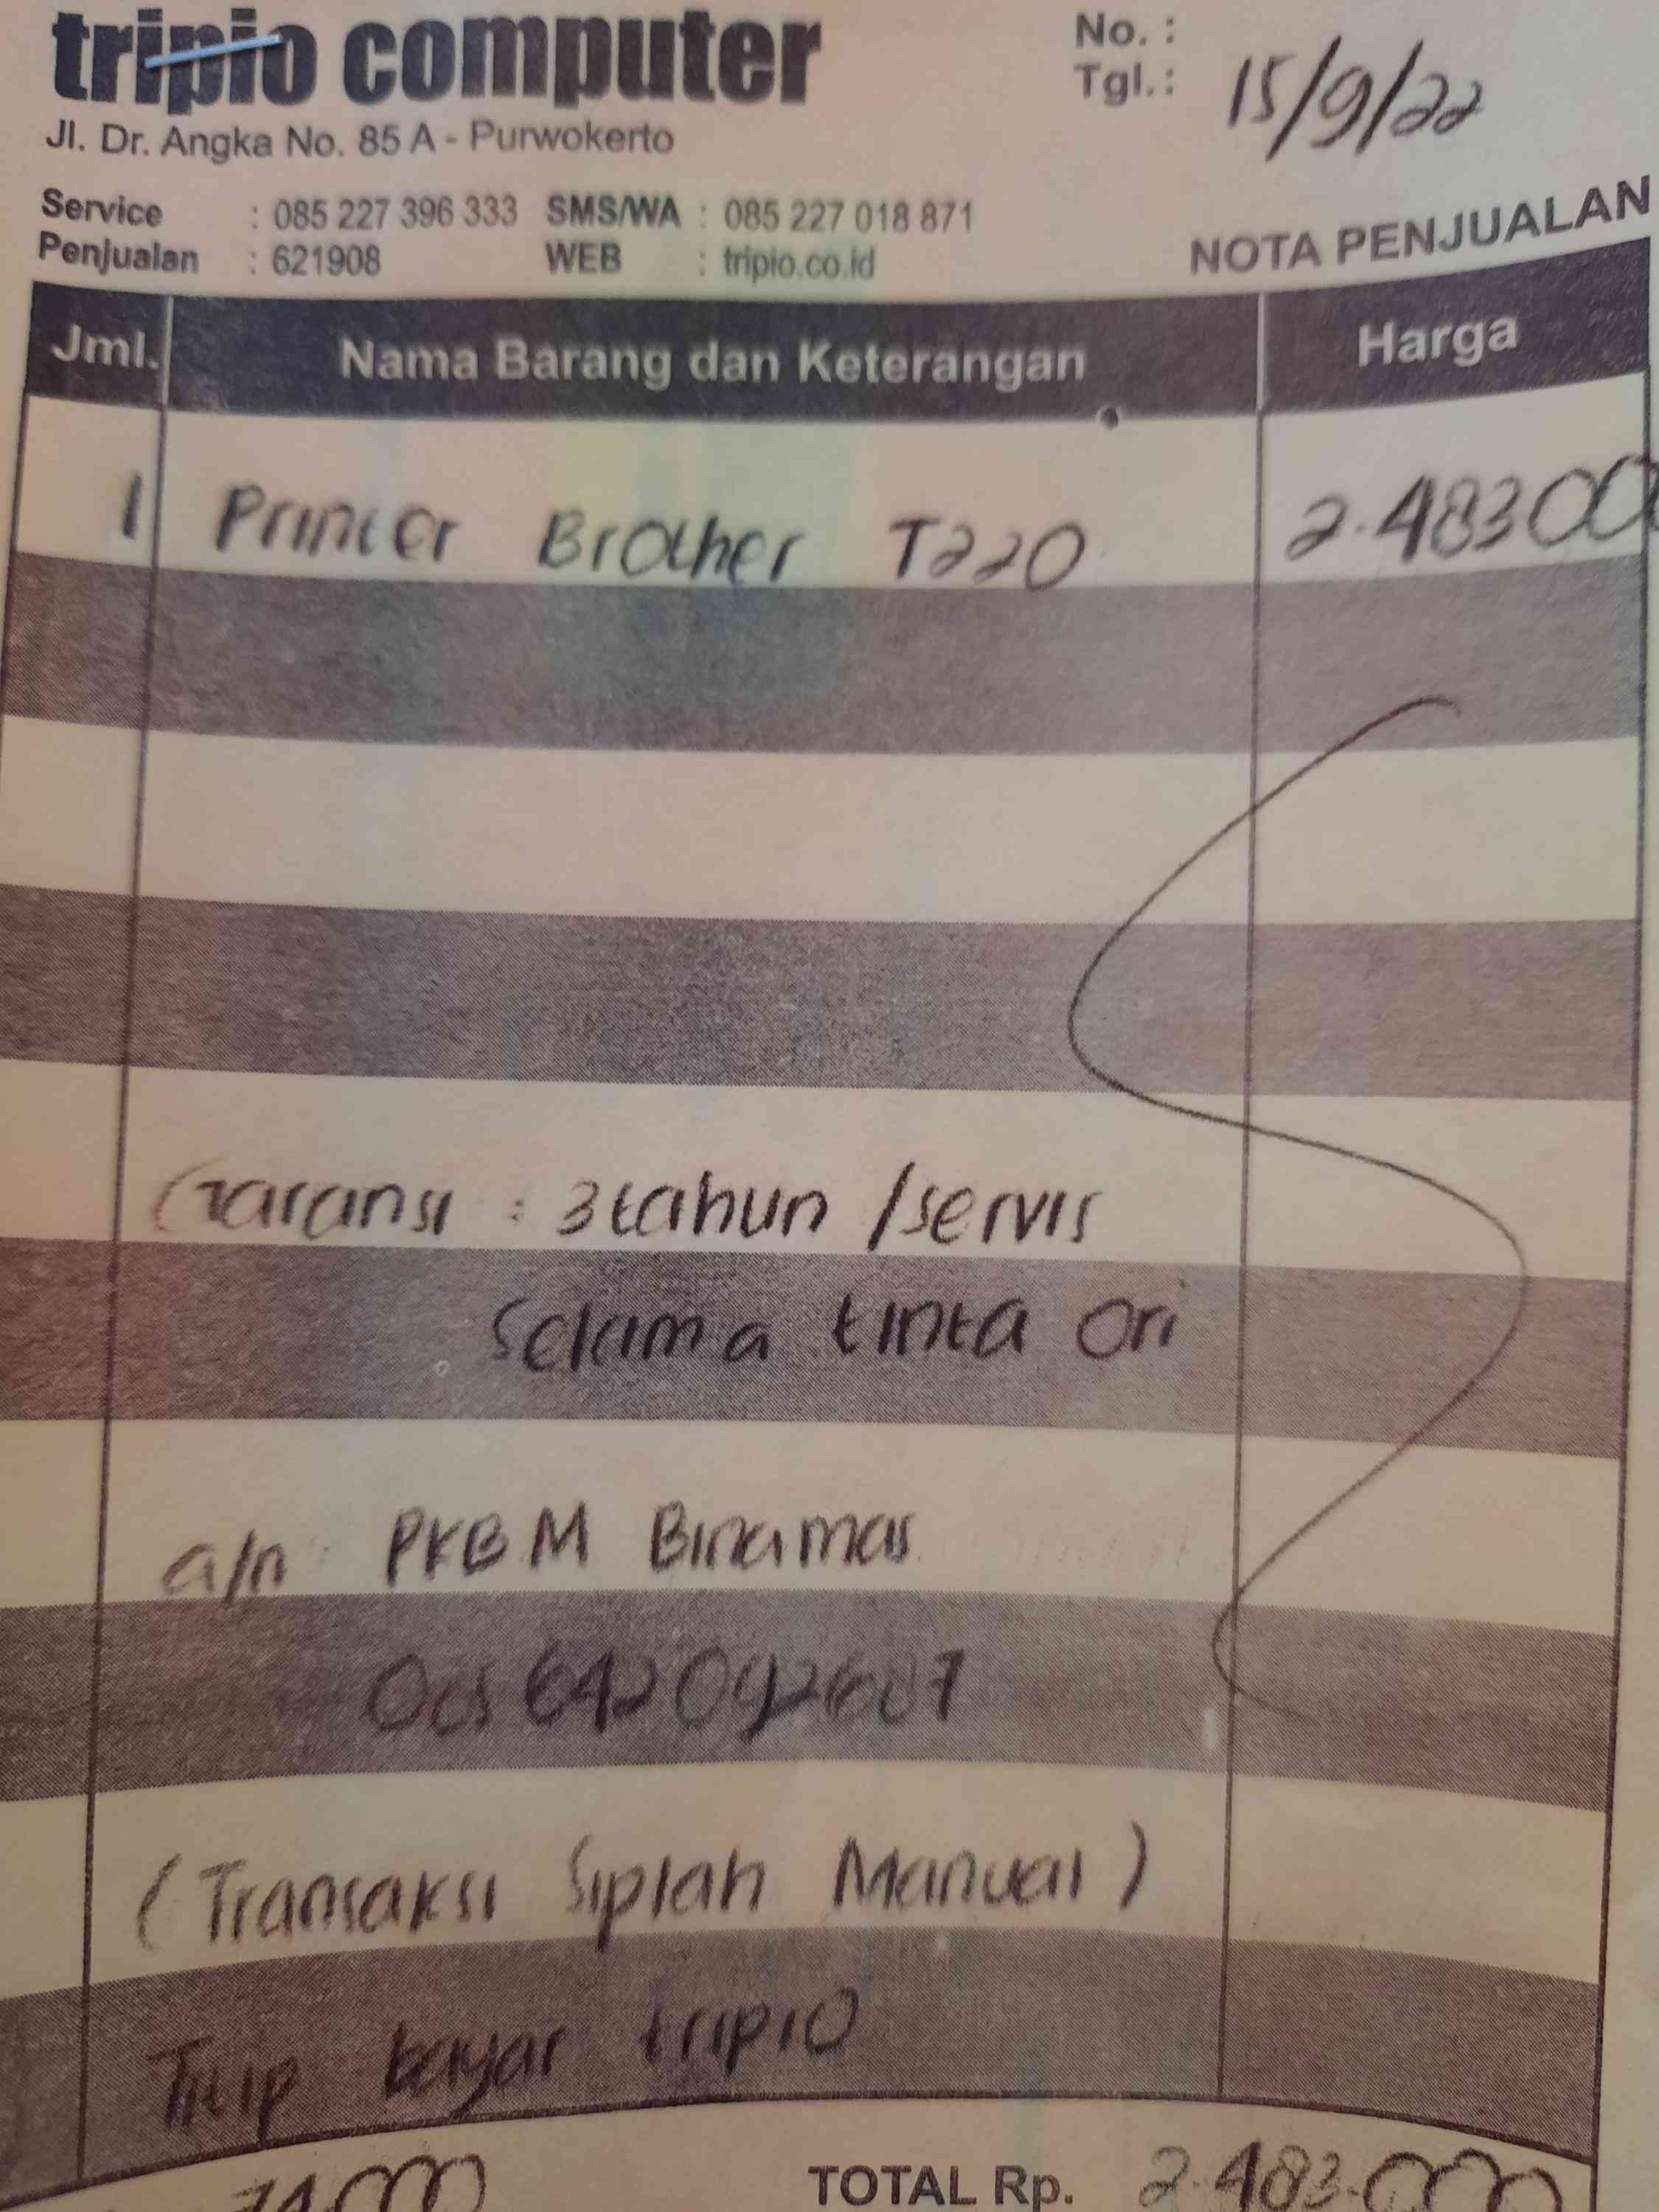 tripio computer
No. :
Tgl. : 15/9/22
Jl. Dr. Angka No. 85 A - Purwokerto
Service : 085 227 396 333 SMS/WA : 085 227 018 871
Penjualan : 621908 WEB : tripio.co.id
NOTA PENJUALAN
Jml. Nama Barang dan Keterangan Harga
1 Printer Brother T220 2.48300
Garansi : 3 tahun /servis
Selama tinta Ori
a/n PKBM Binamas
(Transaksi Siplah Manual)
Titip bayar tripio
TOTAL Rp. 2.483.000